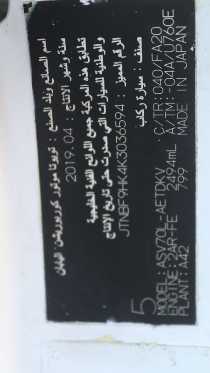 اسم الصانع وبلد الصنع : تويوتا موتور كوربوريشن اليابان
سنة وشهر الانتاج : 2019.04
تطابق هذه المركبة جميع اللوائح الفنية الخليجية
والوطنية للسيارات التي صدرت حتى تاريخ الإنتاج
الرقم المميز : JTNBF9HK4K3036594
صنف : سيارة ركاب
5
MODEL: ASV70L-AETDKV C/TR: 040/FA20
ENGINE: 2AR-FE 2494mL A/TM: -04A/U760E
PLANT: A42 799 MADE IN JAPAN